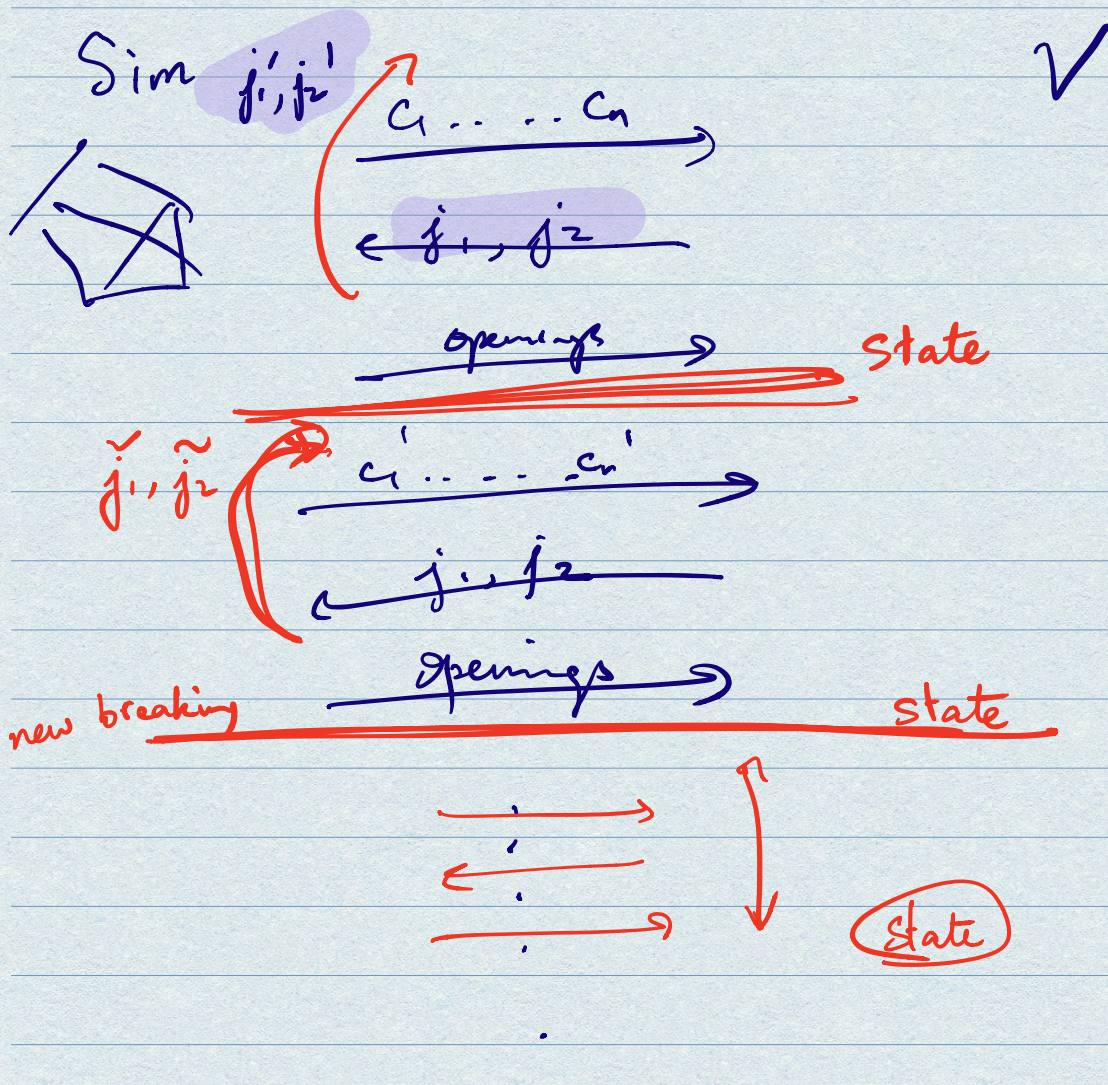 Sim j₁', j₂' V
C₁ . . . . . Cₙ
j₁, j₂
openings
State
j̃₁, j̃₂
C₁' . . . . . Cₙ'
j₁, j₂
Openings
new breaking state
State